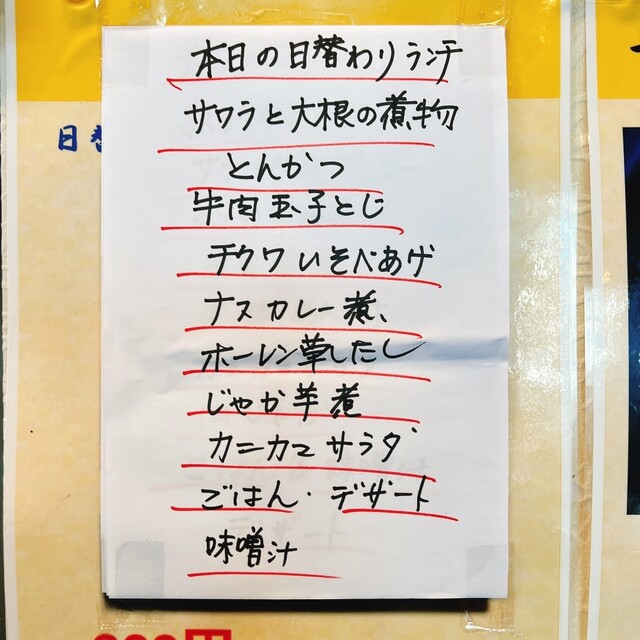 本日の日替わりランチ
サワラと大根の煮物
とんかつ
牛肉玉子とじ
チクワいそべあげ
ナスカレー煮、
ホーレン草したし
じゃが芋煮
カニカマサラダ
ごはん・デザート
味噌汁
日替
円